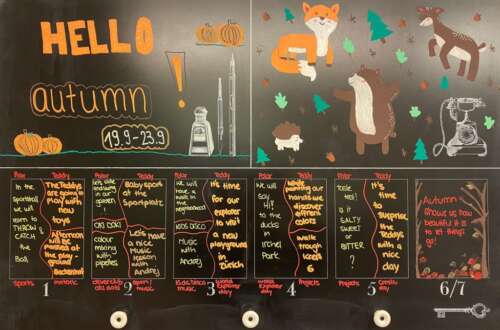 HELLO
autumn !
19.9-23.9
Polar
Teddy
In the
Sportshall
we will
learn to
THROW &
CATCH
the
Ball
The Teddys
are going
play with
new
toys
Afternoon
will be
at the
play-
ground
Bäckerhof
Sports
1
Polar
Teddy
garden
!
colour
mixing
with
pipettes
Baby sport
at the
Sportplatz
Let's have
a nice
Music
lesson
with
Andrej
2
Sport/
music
Polar
Teddy
we will
have a
walk in the
neighborhood
KIDS DISCO
Music
with
Andrej
It's
time
for our
explorer
to visit
a new
playground
in
Zürich
Kids Disco
music
3
World
Explorer
day
Polar
Teddy
We
will
say
Hi!
to the
ducks
in
Irchel
Park
while
painting our
hands we
discover
different
colors
walk
trough
Kreis
6
World
Explorer
day
4
Projects
Polar
Teddy
taste
test!
Is it
SALTY
SWEET
or
BITTER
?
It's
time
to
surprise
the
Teddys
with a
nice
day
Projects
5
day
Autumn
shows us how
beautiful it is
to let things
go!
6/7